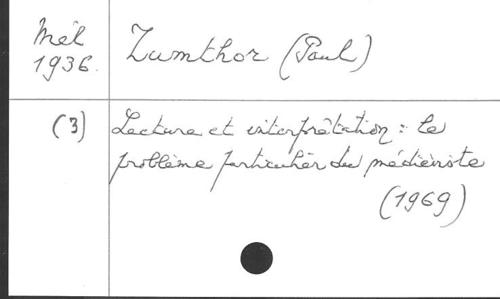 Mél
1936.
Zumthor (Paul)
(3)
Lecture et interprétation : le
problème particulier du médiéviste
(1969)